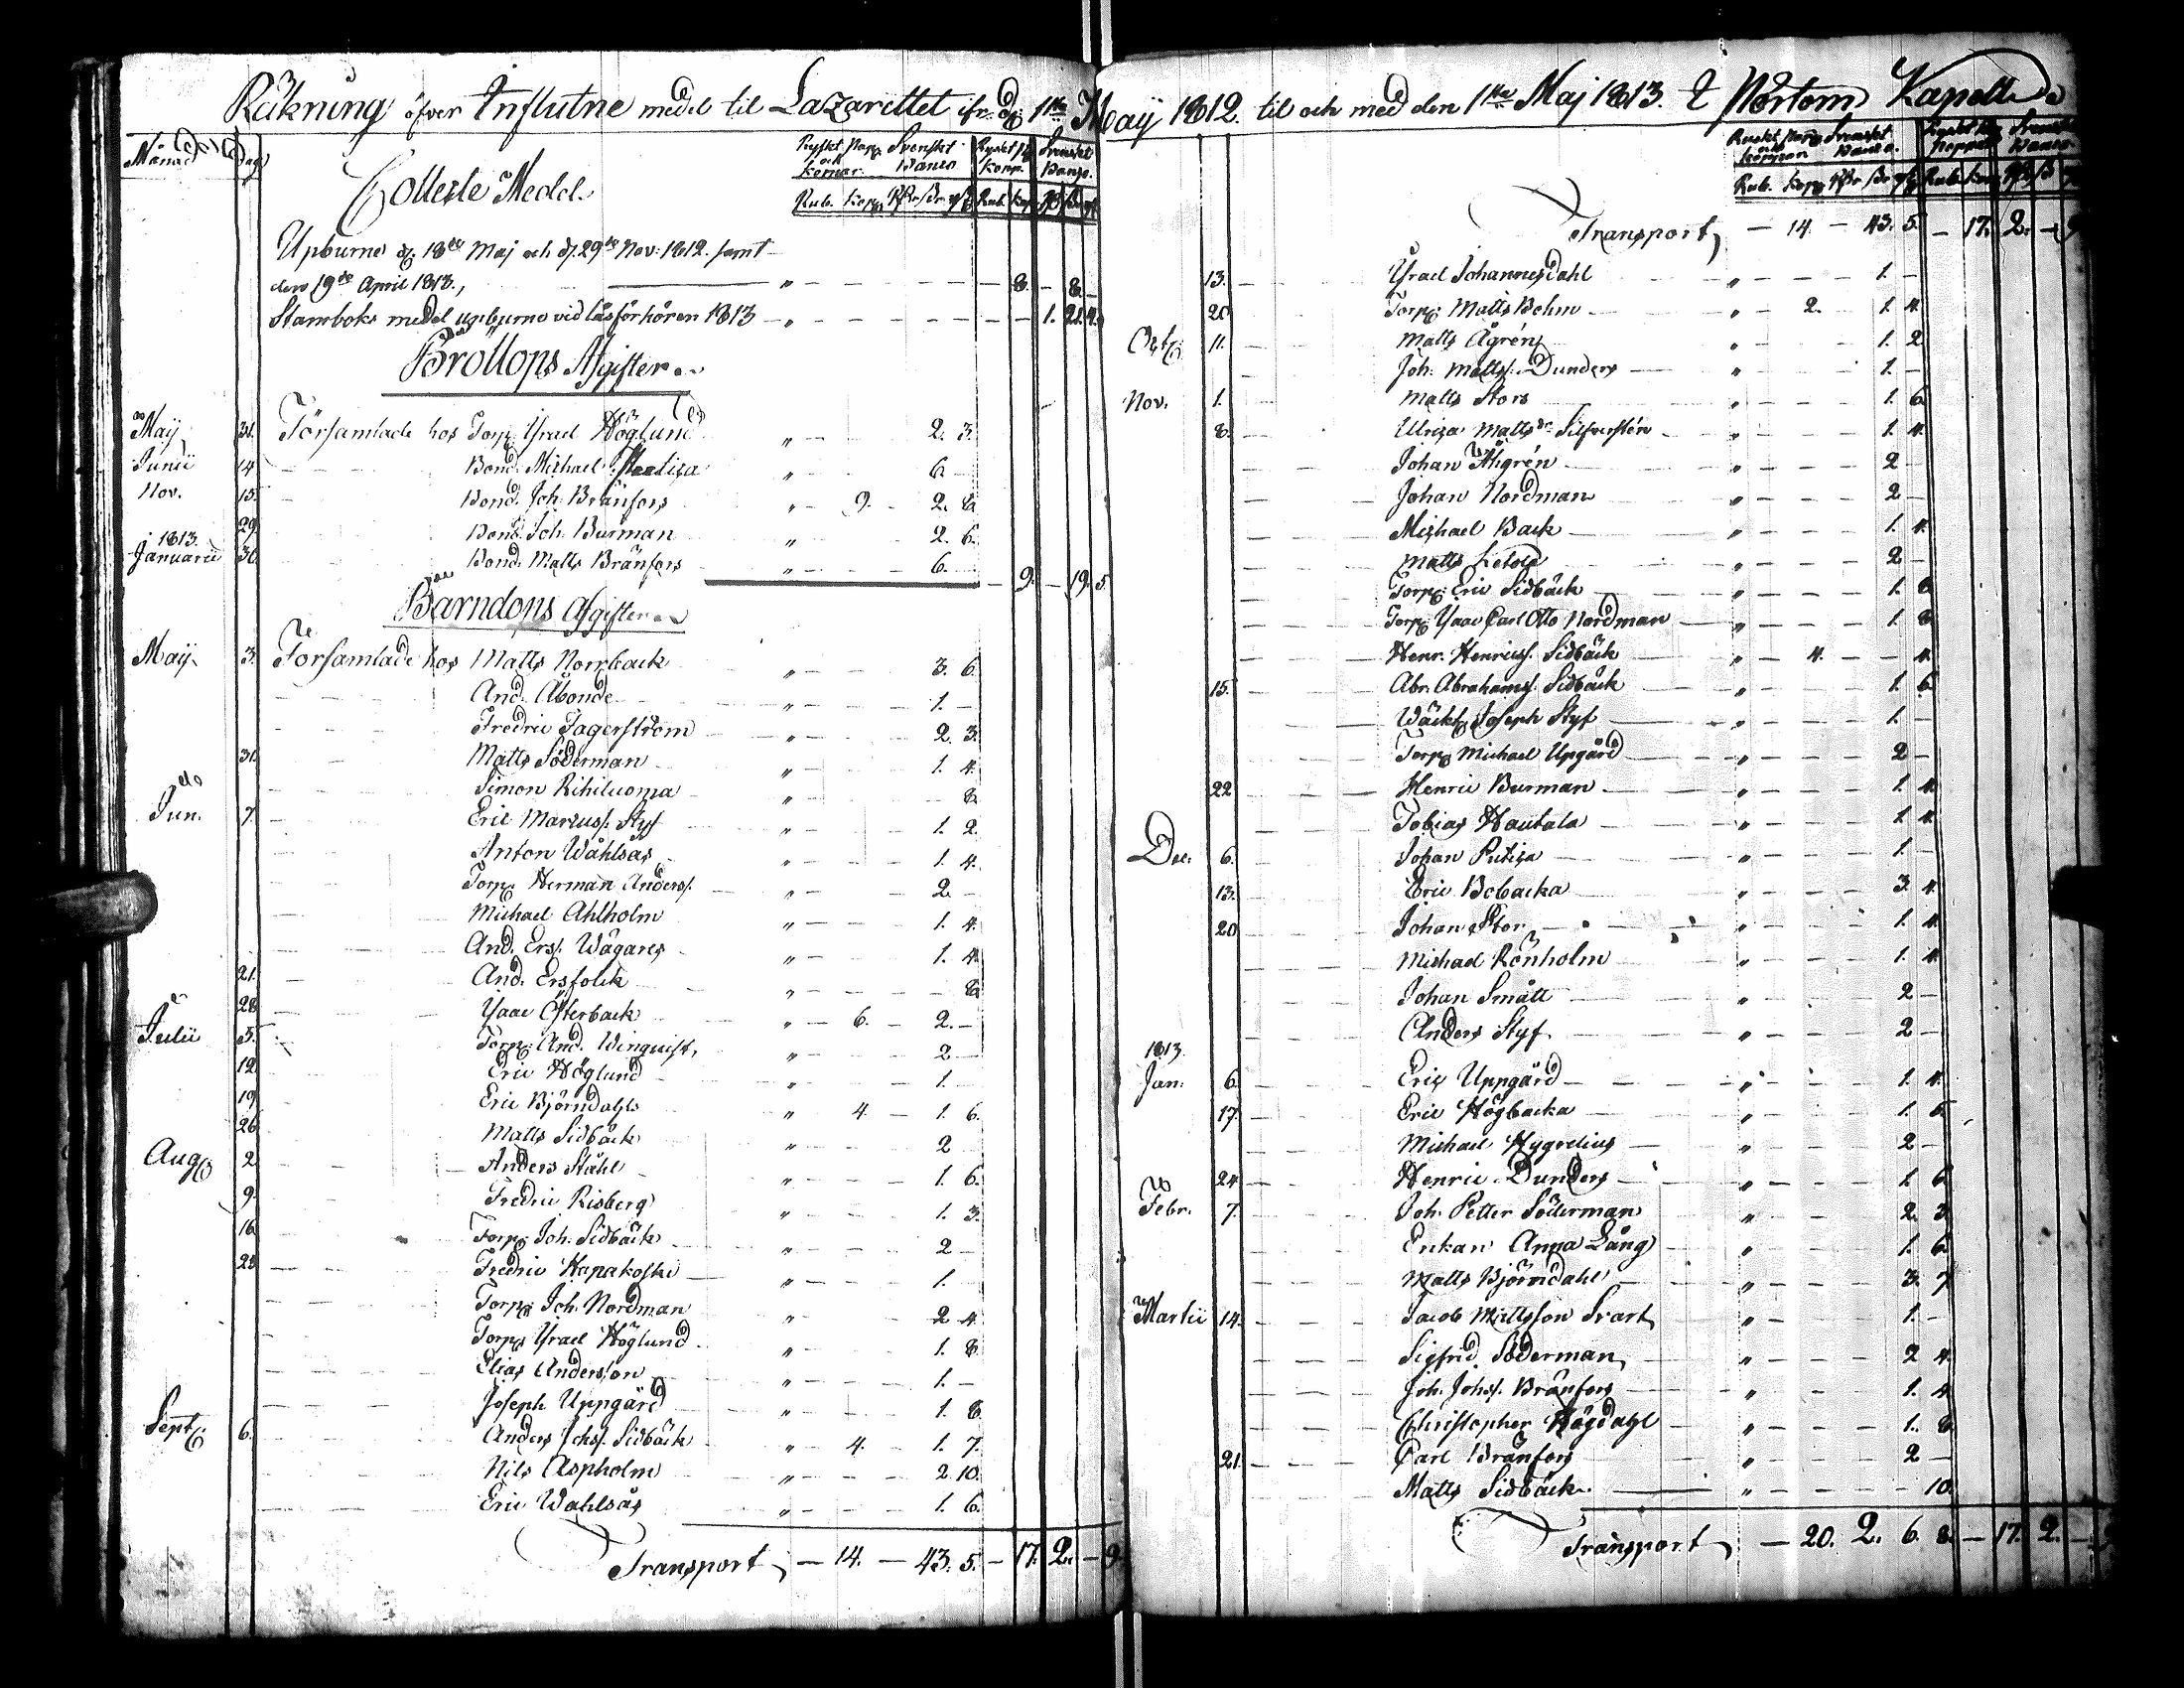 Räkning öfver Influtne medel til Lazarettet ifr. d. 1ste Maij 1812. til och med den 1ste Maj 1813. i Nörtom Kapell
Månad Dag
Ryskt Papp. och Koppar Svenskt Banco Ryskt Kopp. Svenskt Banco.
Rub. Kop. Rub. Kop.
Collecte Medel.
Upburne d. 18de Maj och d. 29de Nov: 1812. samt
den 19de April 1813., " — 8. — 8. —
Stamboks medel upburne vid läsförhören 1813 — " — 1. 21. 4.
Bröllops Afgifter
May 31. Församlade hos Torp. Israel Höglund " — 2. 3.
Junii 14 Bond. Michael " 6. —
Nov. 15. Bond. Joh. Bränfors " — 9. — 2. 8.
29. Bond. Joh. Burman " — 2. 6.
1813.
Januarii 30. Bond. Matts Bränfors " — 6. — 9. — 19. 5.
Barndops Afgifter
May 3. Församlade hos Matts Norrback " — 3. 6.
And. Åbonde " — 1. —
Fredric Fagerström " — 2. 3.
31. Matts Söderman " — 1. 4.
do Simon Rihiluoma " — 8.
Jun. 7. Eric Marcuss. Styf " — 1. 2.
Anton Wahlsås " — 1. 4.
Torp. Herman Anderss. " — 2. —
Michael Ahlholm " — 1. 4.
And. Ers. Wägares " — 1. 4.
21. And. Ersfolck " — 8.
28. Isaac Österback " — 6. — 2. —
Julii 5. Torp. And. Winquist, " — 2 —
12. Eric Höglund " — 1. —
19. Eric Björndahls " 4. — 1. 6.
26. Matts Sidbäck " — 2
Aug. 2. Anders Ståhl " — 1. 6.
9. Fredric Risberg " — 1. 3.
16. Torp. Joh. Sidbäck " — 2 —
23. Fredric Hapakoski " — 1. —
Torp. Joh. Nordman " — 2 4.
Torp. Israel Höglund " — 1. 8.
Elias Andersson " — 1. —
Joseph Uppgård " — 1. 8.
Sept. 6. Anders Johs. Sidbäck " — 4. — 1. 7.
Nils Aspholm " — 2 10.
Eric Wahlsås " — 1. 6.
Transport, — 14. — 43. 5. — 17. 2. — 9.
Ryskt Papp. och Koppar Svenskt Banco. Ryskt Koppar Svenskt Banco.
Rub. Kop. Rub. Kop.
Transport, — 14. — 43. 5. — 17. 2. — 9
13. Israel Johannesdahl " — 1. —
20. Torp. Matts Behm " — 2. 1. 4.
Oct. 11. Matts Ågrén " — 1. 2
Joh. Matts. Dunders " — 1. —
Nov. 1. Matts Stors " — 1. 6.
8. Ulrica Mattsdr Silfverstén " — 1. 4.
Johan Åhgrén " — 2 —
Johan Nordman " — 2 —
Michael Back " — 1. 4.
Matts Ketola " — 2 —
Torp. Eric Sidbäck " — 1. 8
Torp. Isaac Carl Otto Nordman " — 1. 8
Henr. Henricss. Sidbäck " — 4. — 4.
15. Abr. Abrahams. Sidbäck " — 1. 6
Wäckt. Joseph Styf " — 1. —
Torp. Michael Upgård " — 2 —
22 Henric Burman " — 1. 4.
Tobias Hautala " — 1. 4.
Dec. 6. Johan " — 1. —
13. Eric Bobacka " — 3. 4.
20. Johan Stor " — 1. 4.
Michael Rönholm " — 1. 4.
Johan Smått " — 2 —
Anders Styf " — 2 —
1813.
Jan. 6. Eric Uppgård " — 1. 4.
17. Eric Högbacka " — 1. 6.
Michael Hygrelius " — 2 —
24. Henric Dunders " — 1. 6.
Febr. 7. Joh. Petter Söderman " — 2. 3.
Enkan Anna Lång " — 1. 6.
Matts Björndahl " — 3. 7
Martii 14. Jacob Mattsson Svart, " — 1. —
Sigfrid Söderman, " — 2 4.
Joh. Johs. Bränfors " — 1. 4.
Christopher Högdahl " — 1. 8.
21. Carl Bränfors " — 2 —
Matts Sidbäck " — 10.
Transport, — 20. 2. 6. 8. — 17. 2. —